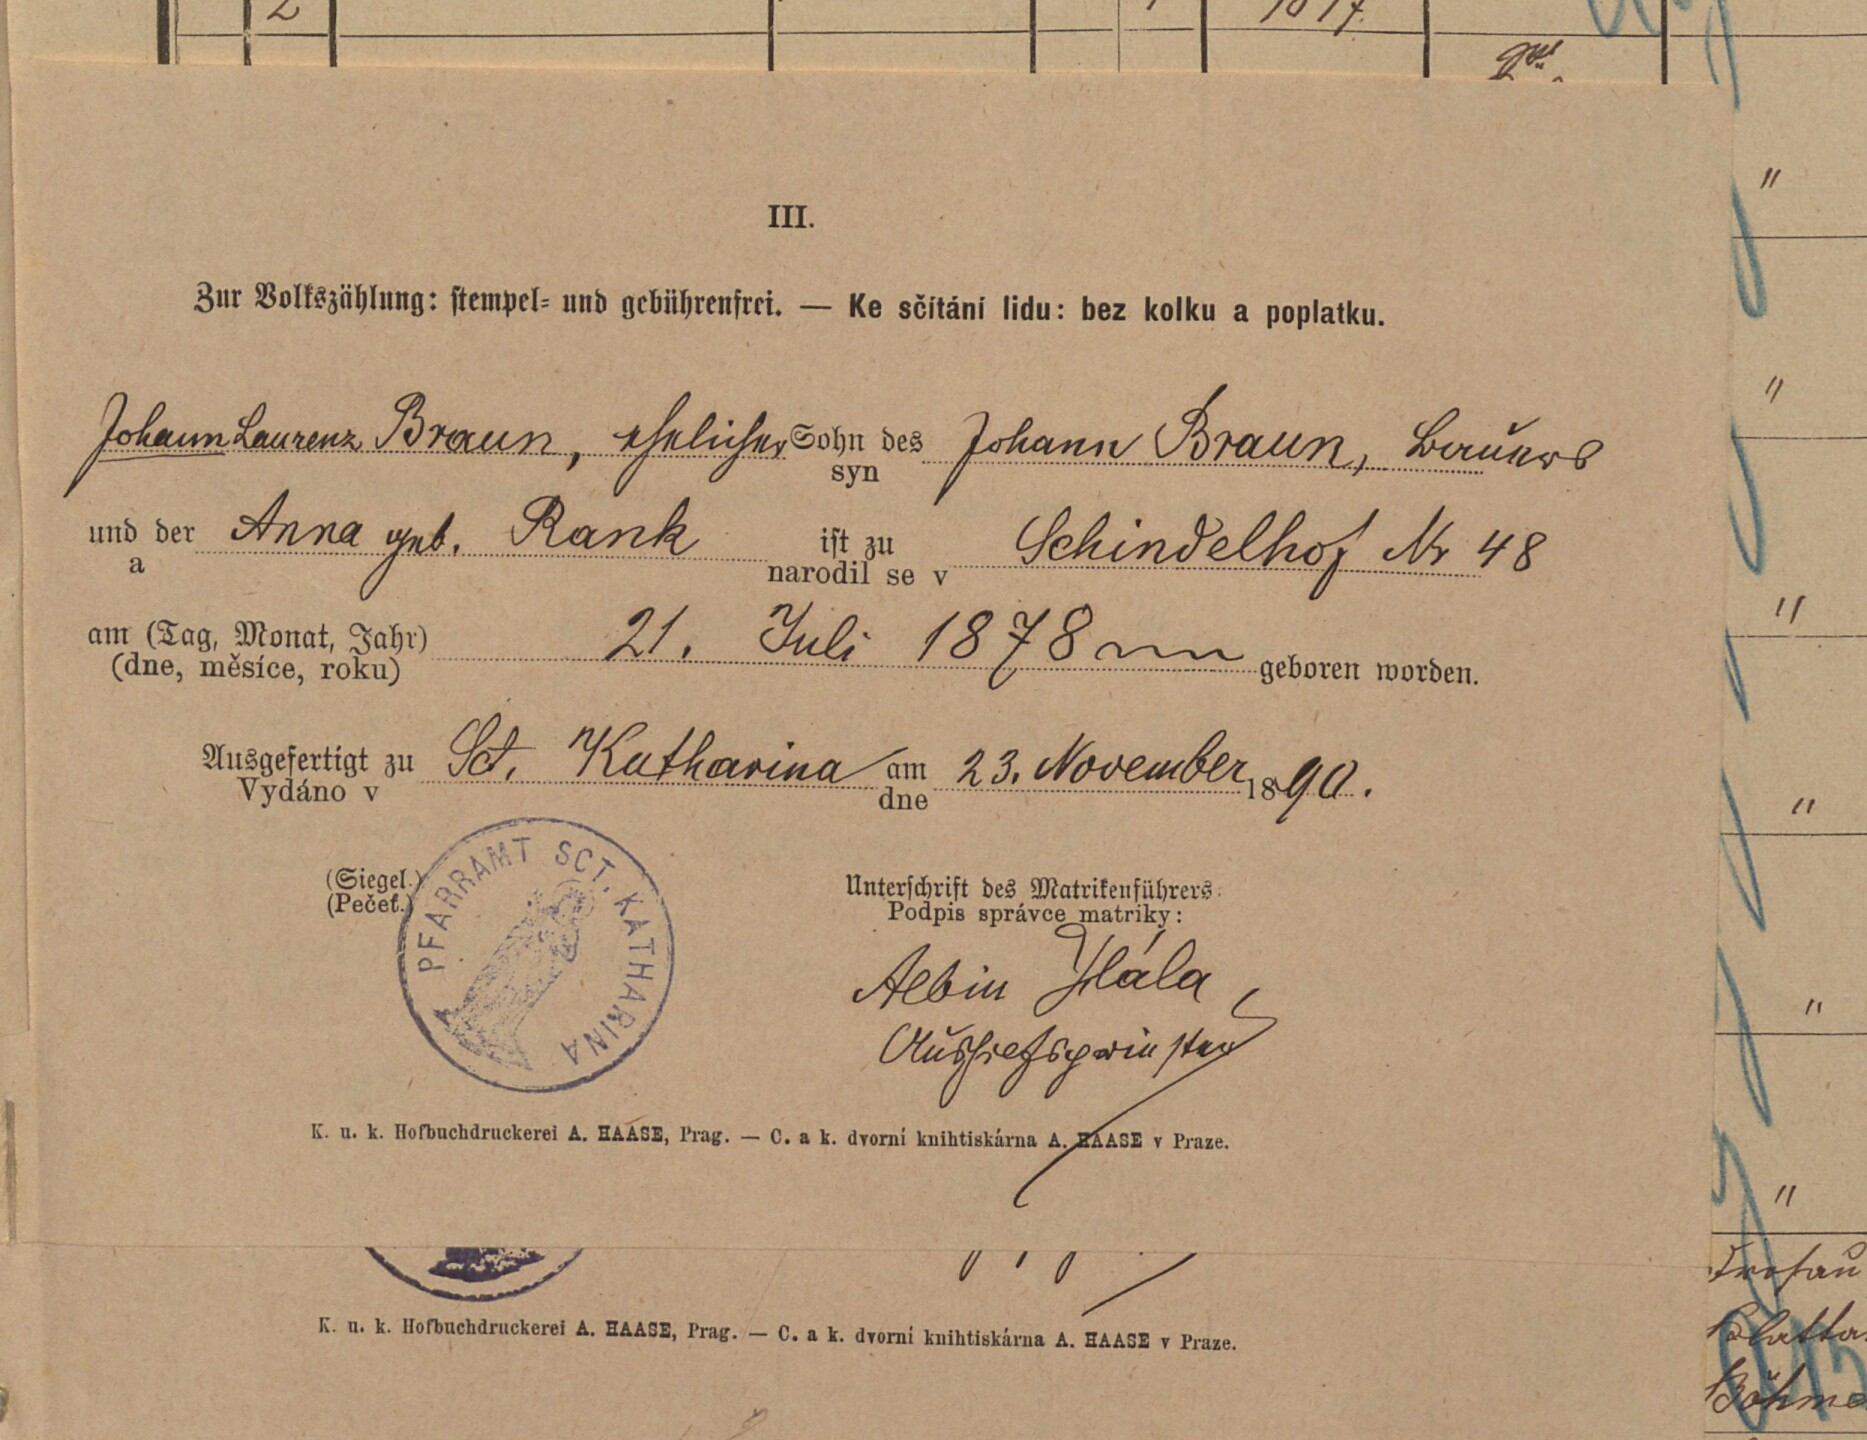 2
III.
Zur Volkszählung: stempel- und gebührenfrei. — Ke sčítání lidu: bez kolku a poplatku.
Johann Laurenz Braun, ehelicher Sohn des Johann Braun, Bauers
syn
und der Anna geb. Rank ist zu Schindelhof Nr 48
a narodil se v
am (Tag, Monat, Jahr) 21. Juli 1878 geboren worden.
(dne, měsíce, roku)
Ausgefertigt zu Sct. Katharina am 23. November 1890.
Vydáno v dne
(Siegel.)
(Pečeť.)
PFARRAMT SCT. KATHARINA
Unterschrift des Matrikenführers:
Podpis správce matriky:
Albin Hála
Aushilfspriester
K. u. k. Hofbuchdruckerei A. HAASE, Prag. — C. a k. dvorní knihtiskárna A. HAASE v Praze.
K. u. k. Hofbuchdruckerei A. HAASE, Prag. — C. a k. dvorní knihtiskárna A. HAASE v Praze.
"
"
"
"
"
"